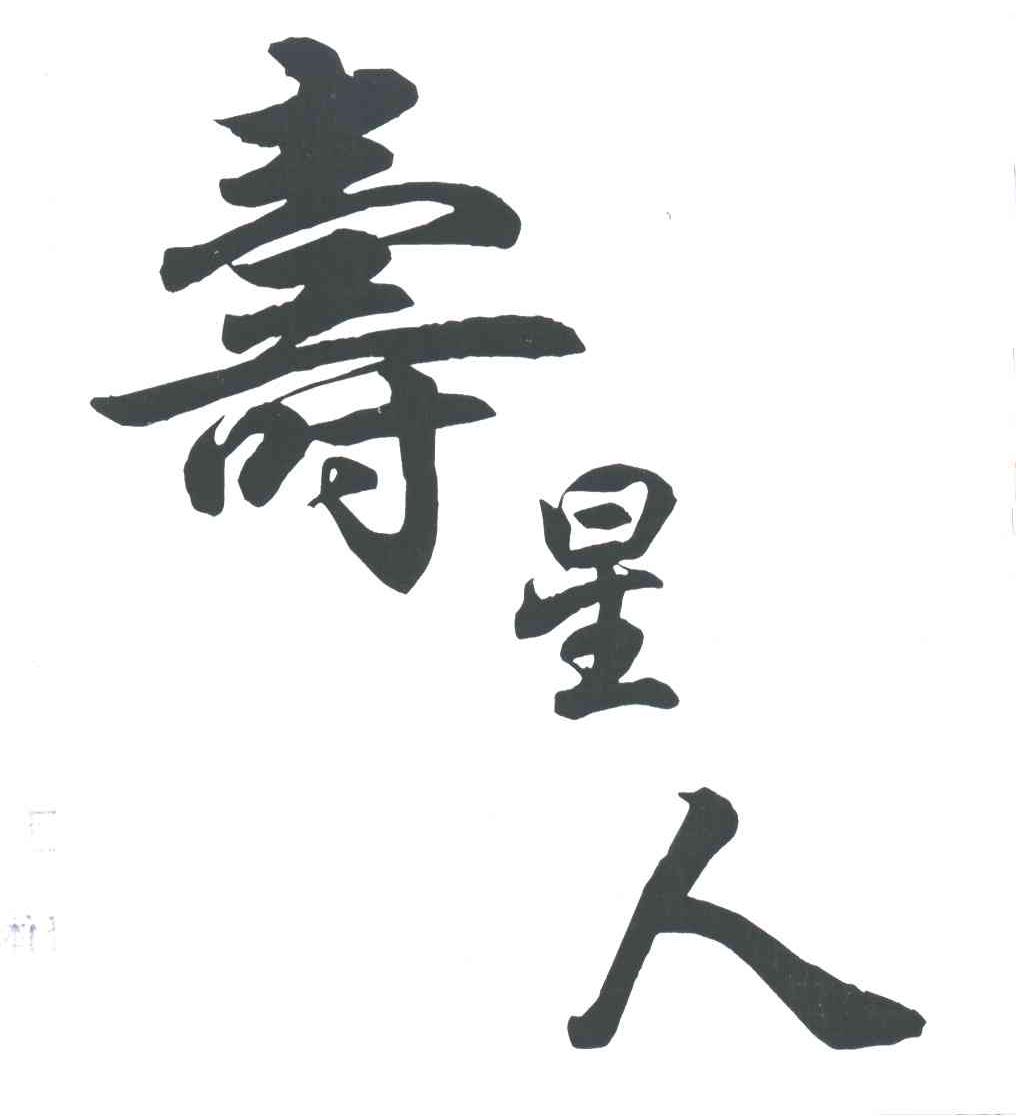 壽星人